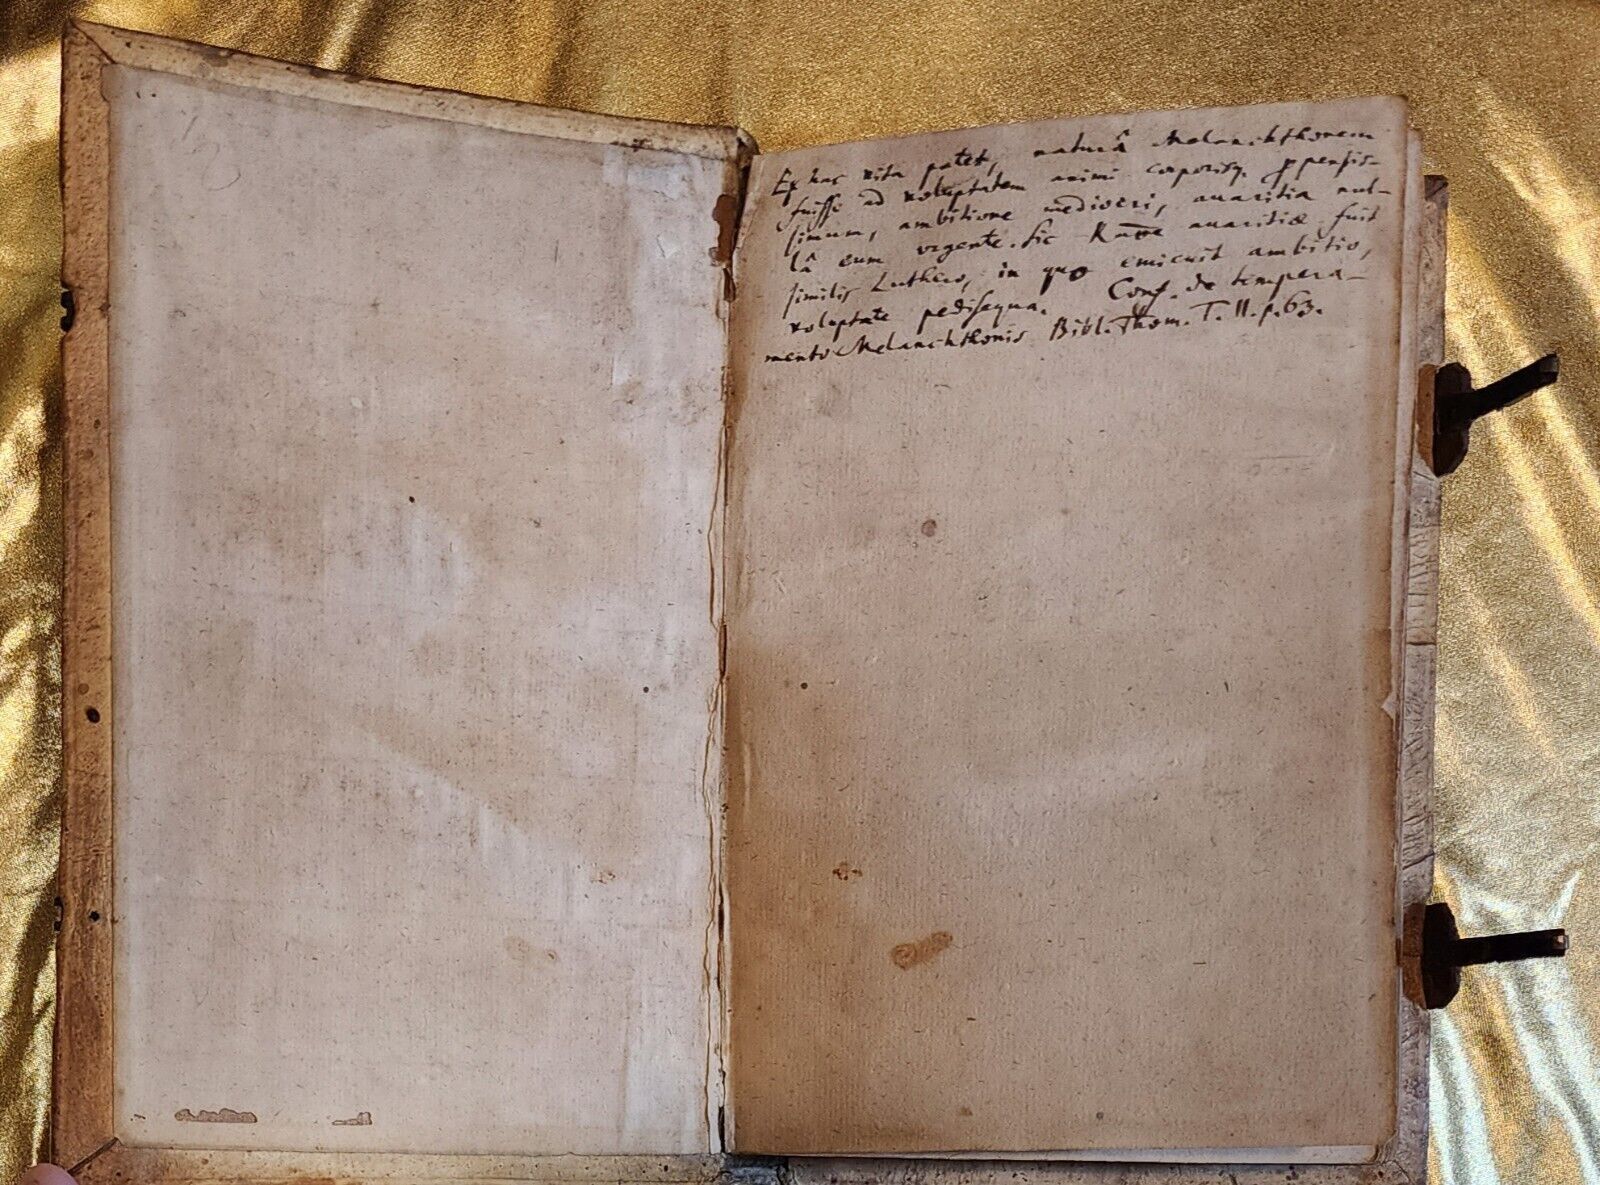 Ex hac vita patet, naturâ Melanchthonem
fuisse ad voluptatem animi corporisq. ꝓpensis-
simum, ambitione mediocri, avaritia nul-
lâ eum urgente. Sic avaritiæ fuit
similis Luthero, in quo emicuit ambitio,
voluptate pedisequa. Conf. de tempera-
mento Melanchthonis Bibl. Thom. T. II. p. 63.